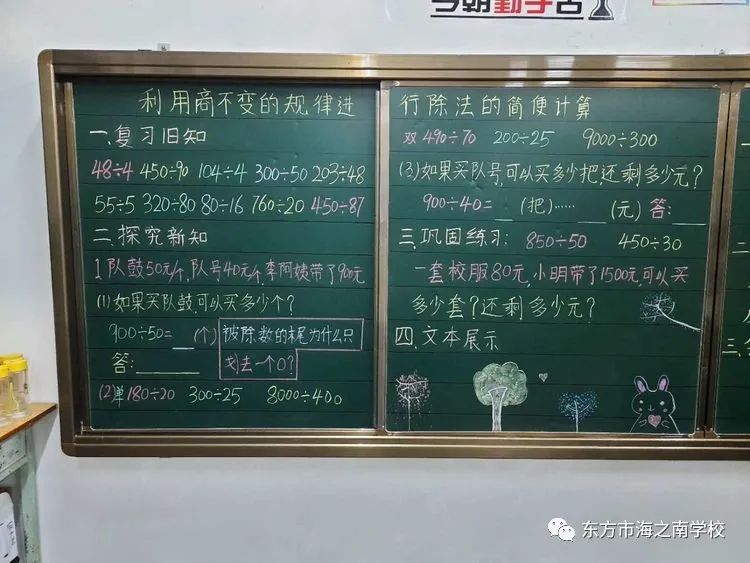 今朝勤学苦
利用商不变的规律进
一.复习旧知
48÷4 450÷90 104÷4 300÷50 203÷48
55÷5 320÷80 80÷16 760÷20 450÷87
二.探究新知
1.队鼓50元/个,队号40元/个,李阿姨带了900元
(1)如果买队鼓,可以买多少个?
900÷50=__(个)
被除数的末尾为什么只
划去一个0?
答:______
(2)单 180÷20 300÷25 8000÷400
行除法的简便计算
双 490÷70 200÷25 9000÷300
(3)如果买队号,可以买多少把,还剩多少元?
900÷40=__(把)……__(元) 答:____
三.巩固练习: 850÷50 450÷30
一套校服80元,小明带了1500元,可以买
多少套?还剩多少元?
四.文本展示
东方市海之南学校